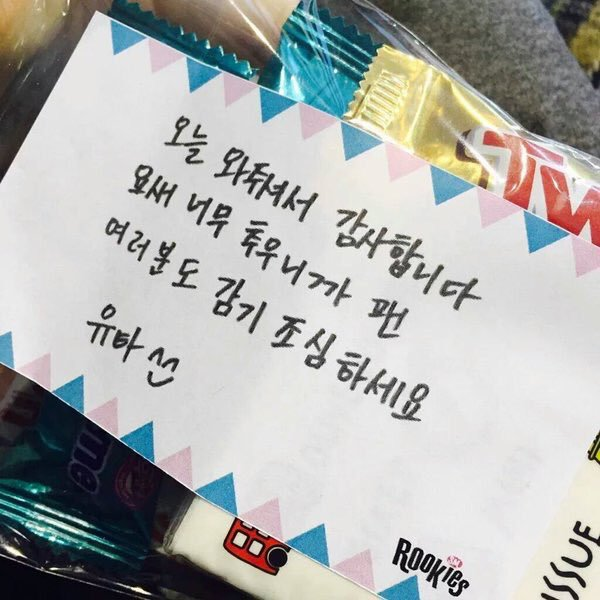 오늘 와줘서 감사합니다
요새 너무 추우니까 팬
여러분도 감기 조심하세요
유타 션
ROOKIES
ISSUE
TW
me